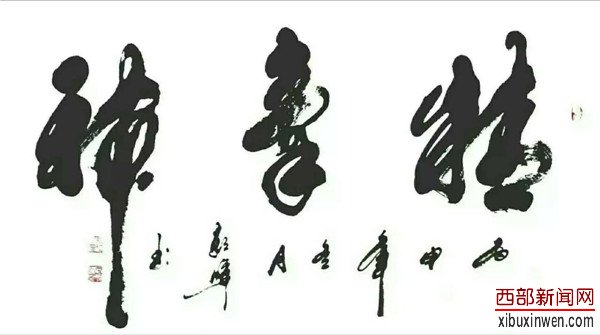 精氣神
丙申年冬月
西部新闻网
xibuxinwen.com